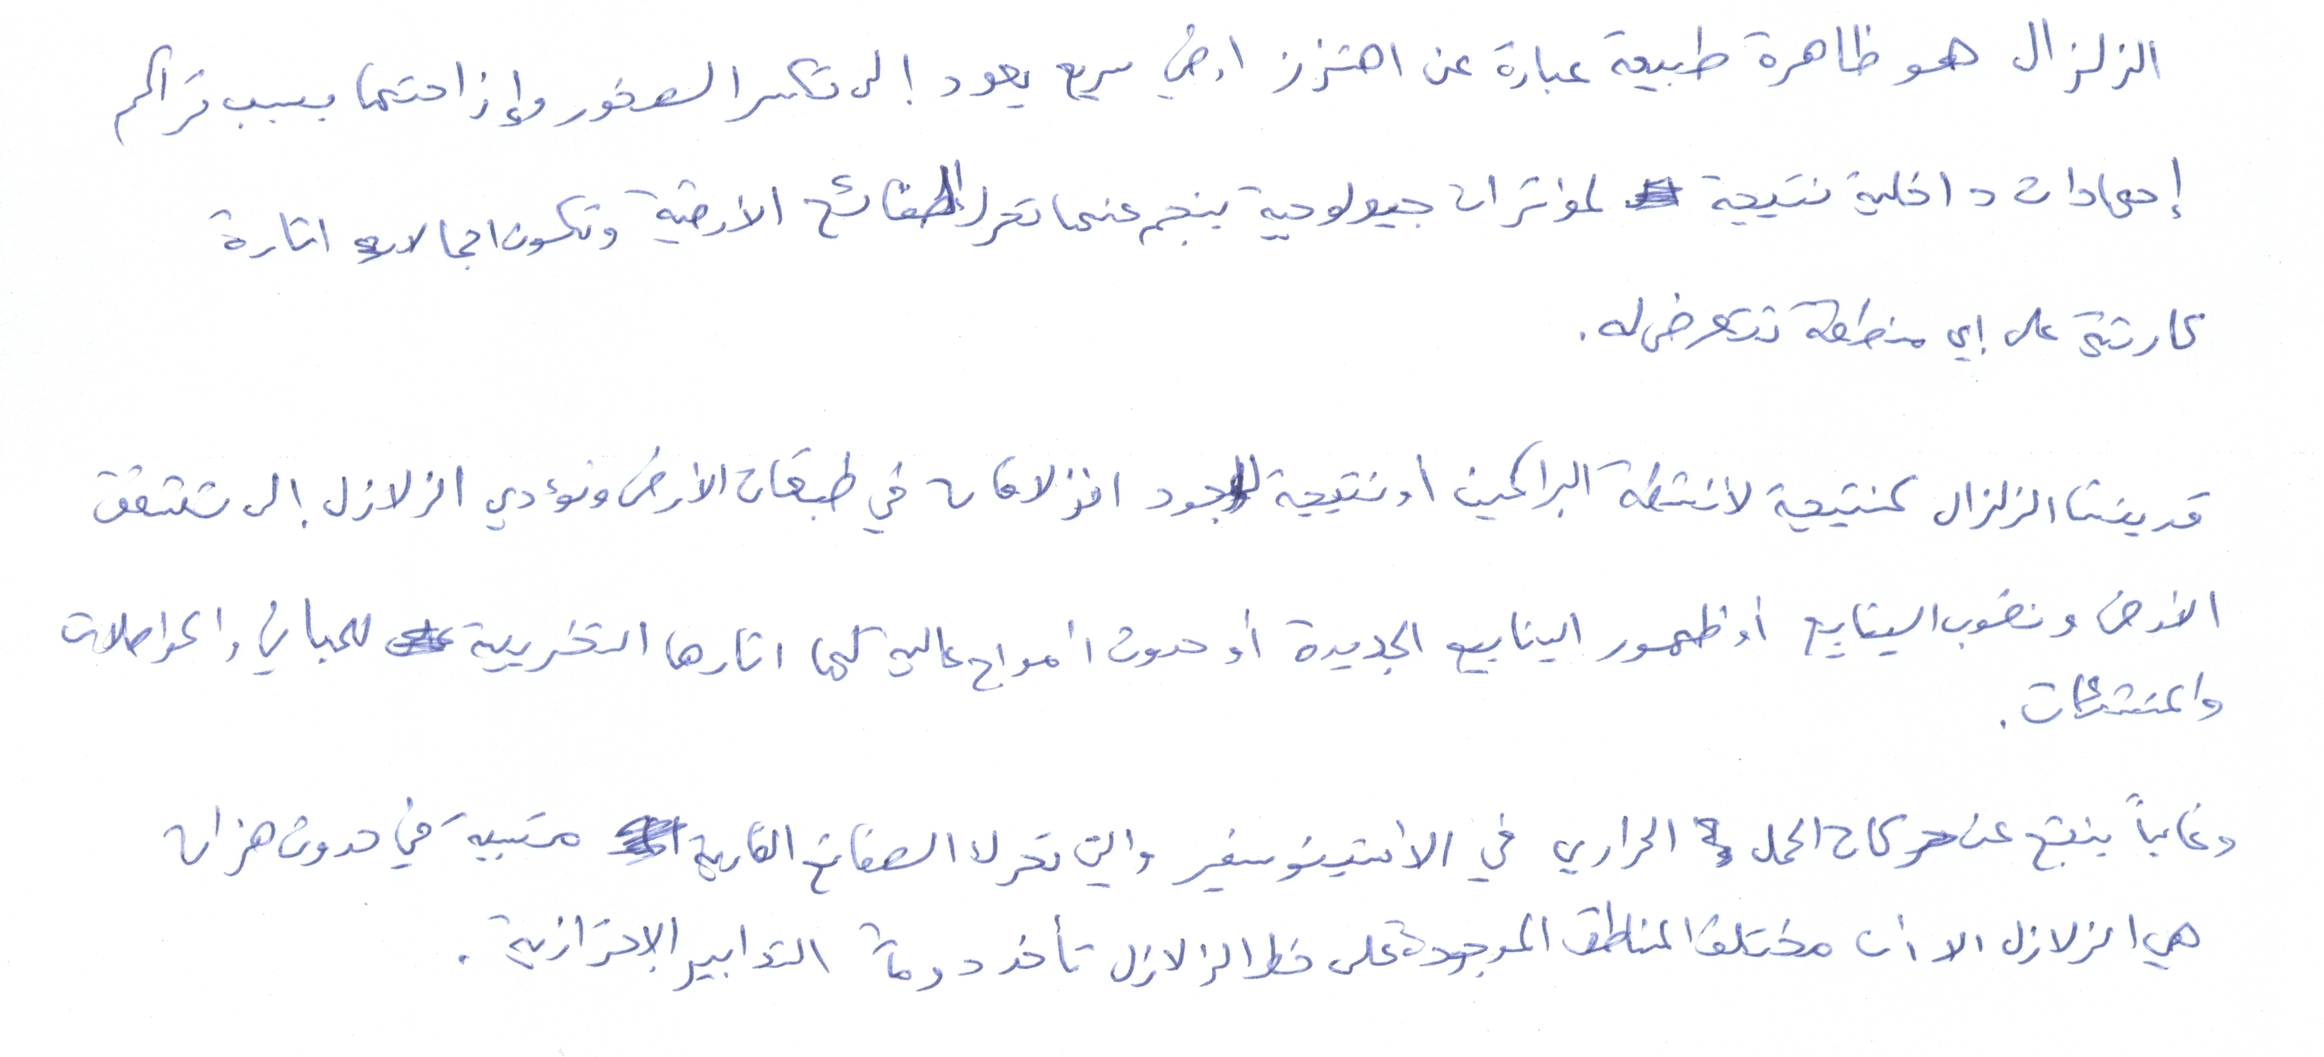 الزلزال هو ظاهرة طبيعة عبارة عن اهتزز ارضي سريع يعود إلى تكسر الصخور وإزاحتها بسبب تراكم
إجهادات داخلية نتيجة لمؤثرات جيولوجية ينجم عنها تحرك الصفائح الأرضية وتكون اثارة
كارثية على إي منطقة تتعرض له .
قد ينشا الزلزال كنتيجة لأنشطة البراكين أو نتيجة لوجود انزلاقات في طبقات الأرض وتؤدي الزلازل إلى تشقق
الأرض ونضوب الينابيع أو ظهور الينابيع الجديدة أو حدوث أمواج عالية كلها اثارها التخريبية للمباني والمواصلات
والمنشئات .
وغالباً ينتج عن حركات الحمل الحراري في الأستينوسفير والتي تحرك الصفائح القارية متسببة في حدوث هزات
هي الزلازل الا أن مختلف المناطق الموجودة على خط الزلازل تأخذ دومًا التدابير الإحترازية .